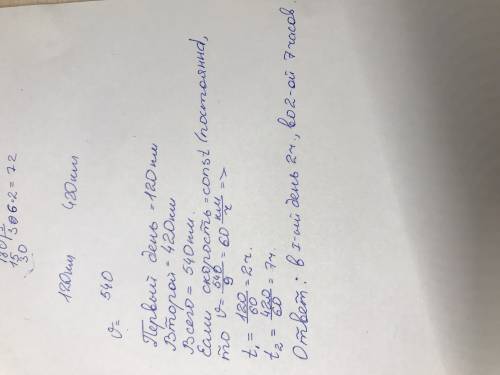 15
30
306·2=72
180км 420км
υ= 540
Первый день = 120км
Второй = 420км
Всего = 540км.
Если скорость = const (постоянна),
то υ = 540/9 = 60 км/ч =>
t₁ = 120/60 = 2ч.
t₂ = 420/60 = 7ч.
Ответ: в I-ый день 2ч., во 2-ой 7 часов.